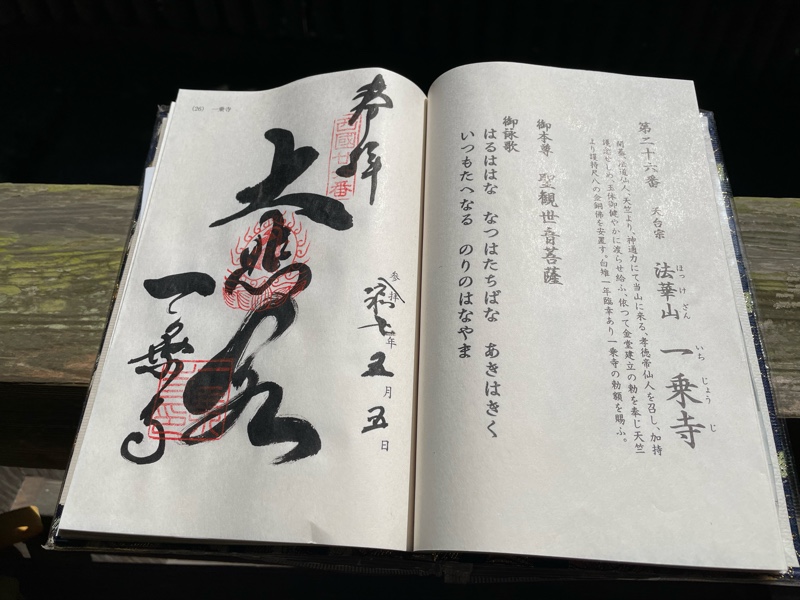 第二十六番 天台宗 法華山 一乗寺
ほっけざん いちじょうじ
開基、法道仙人、天竺より、神通力にて当山に来る、孝徳帝仙人を召し、加持
護念せしめ、玉体御健やかに渡らせ給ふ、依つて金堂建立の勅を奉じ天竺
より護持尺八の金銅佛を安置す。白雉一年臨幸あり一乗寺の勅額を賜ふ。
御本尊 聖觀世音菩薩
御詠歌
はるははな なつはたちばな あきはきく
いつもたへなる のりのはなやま
(26) 一乗寺
奉拝
西國廿六番
参拝 令七年五月五日
大悲閣
一乗寺